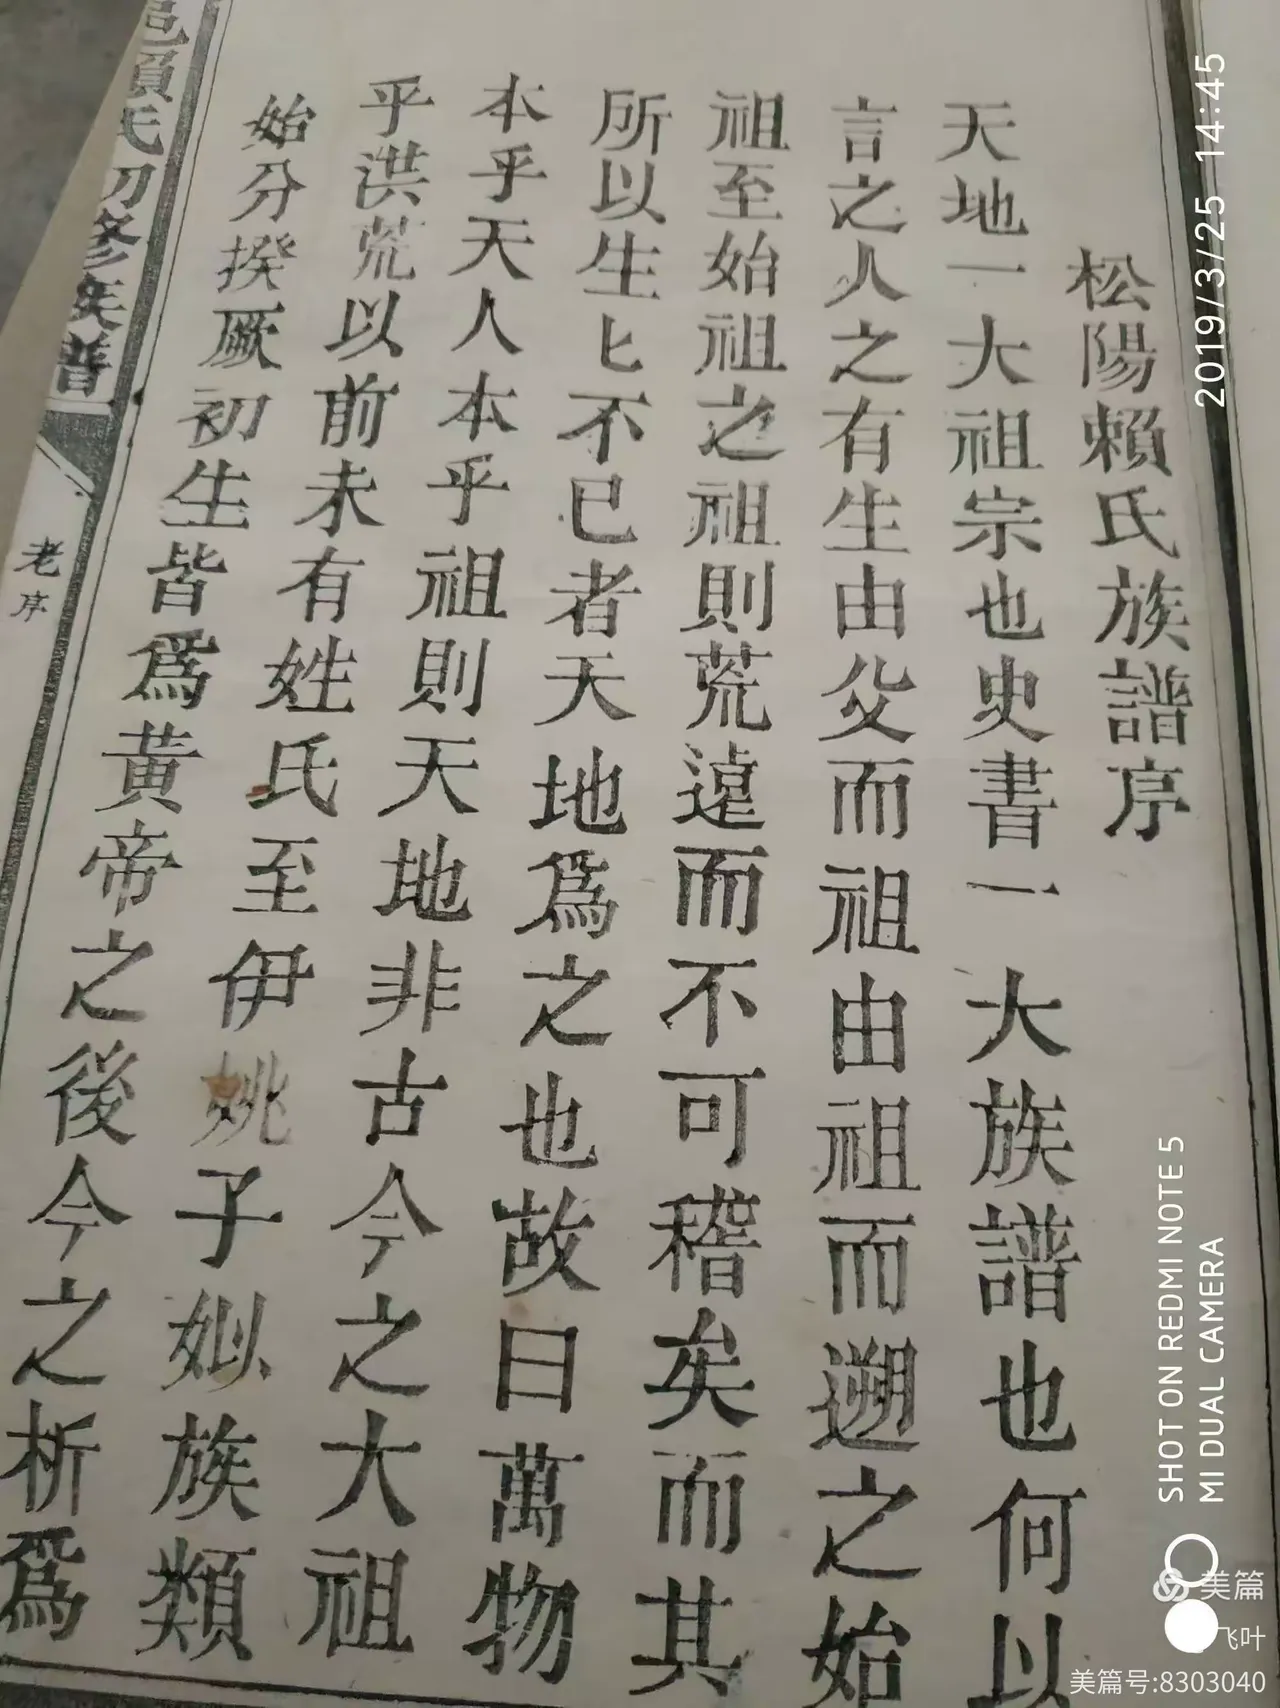 松陽賴氏族譜序
天地一大祖宗也史書一大族譜也何以
言之人之有生由父而祖由祖而遡之始
祖至始祖之祖則荒遠而不可稽矣而其
所以生匕不已者天地爲之也故曰萬物
本乎天人本乎祖則天地非古今之大祖
乎洪荒以前未有姓氏至伊姚子姒族類
始分揆厥初生皆爲黃帝之後今之析爲
邑賴氏初修族譜
老序
2019/3/25 14:45
SHOT ON REDMI NOTE 5
MI DUAL CAMERA
美篇
飞叶
美篇号:8303040